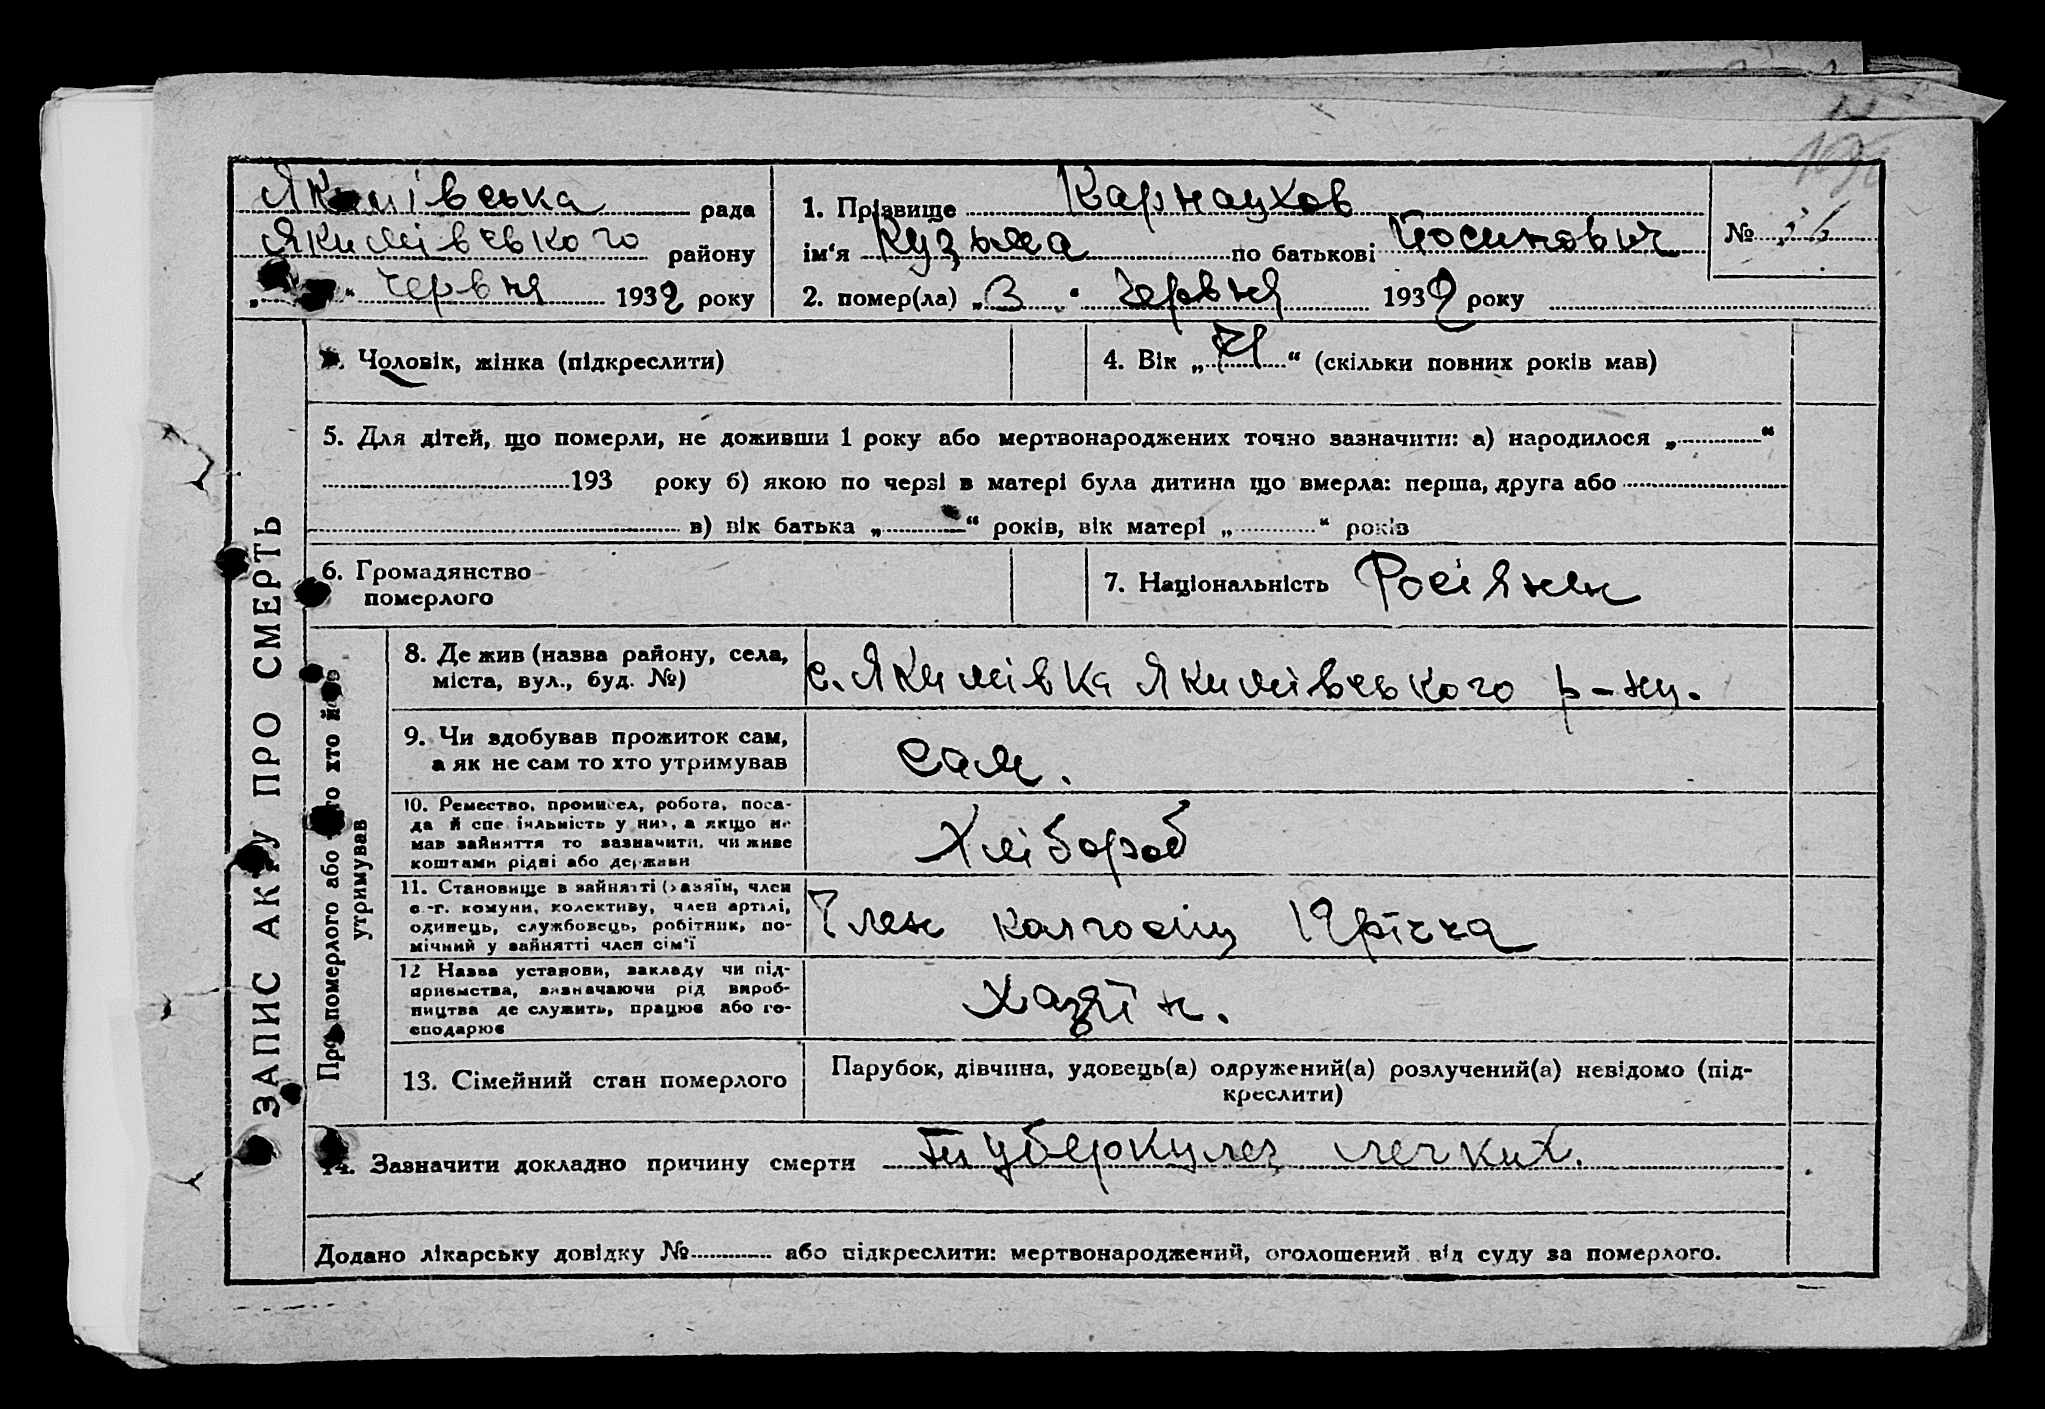 Якимівська рада
Якимівського району
„ “ червня 1932 року
1. Прізвище Карнаухов
ім‘я Кузьма по батькові Йосипович
2. помер(ла) „3“ червня 1932 року
№
3. Чоловік, жінка (підкреслити)
4. Вік „ “ (скільки повних років мав)
5. Для дітей, що померли, не доживши 1 року або мертвонароджених точно зазначити: а) народилося „ “
193 року б) якою по черзі в матері була дитина що вмерла: перша, друга або
в) вік батька „ “ років, вік матері „ “ років
6. Громадянство
померлого
7. Національність Росіянин
ЗАПИС АКТУ ПРО СМЕРТЬ
Про померлого або того хто його
утримував
8. Де жив (назва району, села,
міста, вул., буд. №)
с. Якимівка Якимівського р-ну.
9. Чи здобував прожиток сам,
а як не сам то хто утримував
сам.
10. Ремество, промисел, робота, поса-
да й спеціяльність у них, а якщо не
мав зайняття то зазначити, чи живе
коштами рідні або держави
Хлібороб
11. Становище в зайнятті (хазяїн, член
с.-г. комуни, колективу, член артілі,
одинець, службовець, робітник, по-
мічний у зайнятті член сім‘ї
Член колгоспу
12 Назва установи, закладу чи під-
приємства, зазначаючи рід вироб-
ництва де служить, працює або го-
сподарює
Хазяїн.
13. Сімейний стан померлого
Парубок, дівчина, удовець(а) одружений(а) розлучений(а) невідомо (під-
креслити)
14. Зазначити докладно причину смерти Туберкулез легких.
Додано лікарську довідку № або підкреслити: мертвонароджений, оголошений від суду за померлого.